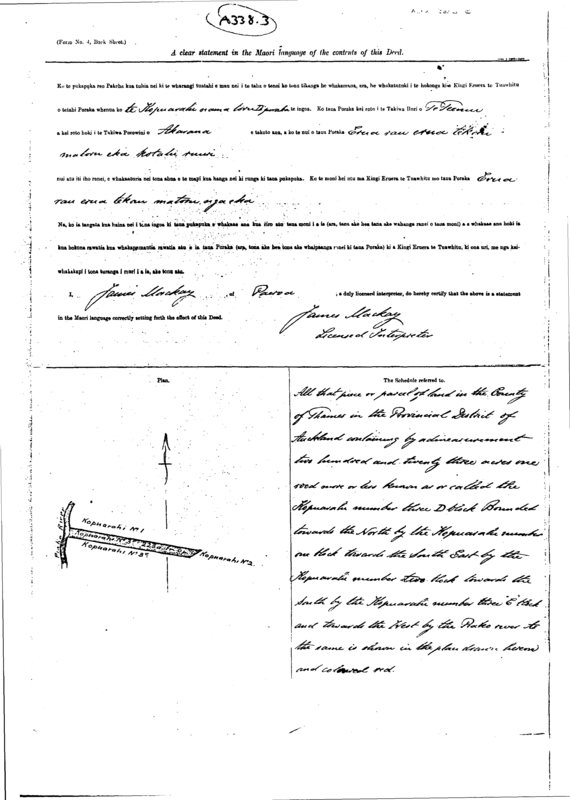 A338.3
(Form No. 4, Back Sheet.)
A clear statement in the Maori language of the contents of this Deed.
Ko te pukapuka reo Pakeha kua tuhia nei ki te wharangi tuatahi e mau nei i te taha o tenei ko tona tikanga he whakamana, ara, he whakatutuki i te hokonga kia Kingi Eruera te Tuawhitu
o tetahi Poraka whenua ko te Kopuarahi nama toru D poraka te ingoa. Ko taua Poraka kei roto i te Takiwa Hori o Te Temu
a kei roto hoki i te Takiwa Porowini o Akarana e takoto ana, a ko te nui o taua Poraka E rua rau e rua tekau
ma toru eka kotahi ruuri
nui atu iti iho ranei, e whakaaturia nei tona ahua e te mapi kua hanga nei ki runga ki tenei pukapuka. Ko te moni kei utu ma Kingi Eruera te Tuawhitu mo taua Poraka E rua
rau e rua tekau ma toru
Na, ko ia tangata kua haina nei i tona ingoa ki tena pukapuka e whakaae ana kua riro atu tana moni i a ia (ara, tona ake hea tona ake wahanga ranei o taua moni) a e whakaae ana hoki ia
kua hokona rawatia kua whakapumautia rawatia atu e ia taua Poraka (ara, tona ake hea tona ake whaipaanga ranei ki taua Poraka) ki a Kingi Eruera te Tuawhitu, ki ona uri, me nga kai-
whakakapi i tona turanga i runei i a ia, ake tonu atu.
I, James Mackay of Paeroa , a duly licensed interpreter, do hereby certify that the above is a statement
in the Maori language correctly setting forth the effect of this Deed.
James Mackay
Licensed Interpreter
Plan.
Kopuarahi No 1
Kopuarahi No 2
Kopuarahi No 3
The Schedule referred to.
All that piece or parcel of land in the County
of Thames in the Provincial District of
Auckland containing by admeasurement
two hundred and twenty three acres one
rood more or less known as or called the
Kopuarahi number three D block Bounded
towards the North by the Kopuarahi number
one block towards the South East by the
Kopuarahi number two block towards the
South by the Kopuarahi number three E block
and towards the West by the Piako river As
the same is shown in the plan drawn hereon
and coloured red.